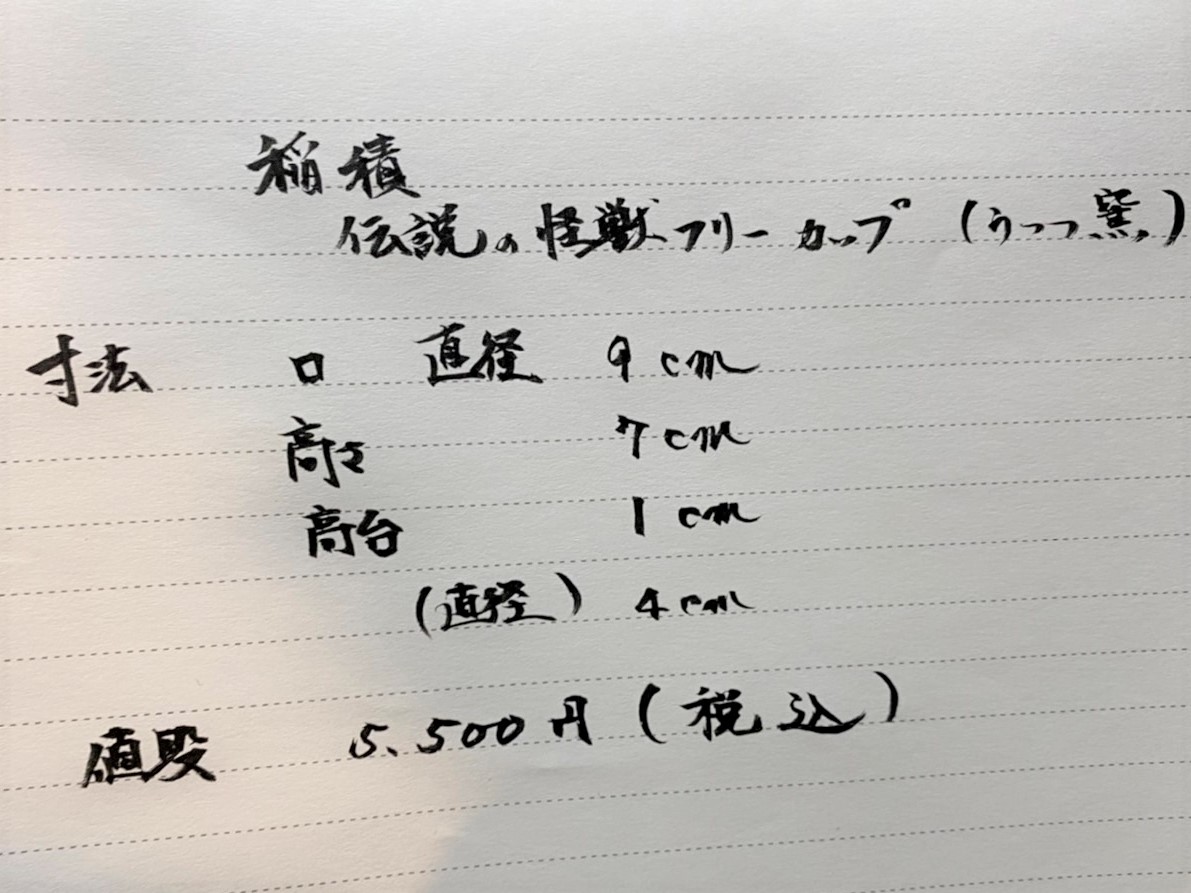 稲積
伝説の怪獣フリーカップ(うつつ窯)
寸法 口 直径 9cm
高さ 7cm
高台 1cm
(直径) 4cm
値段 5,500円(税込)